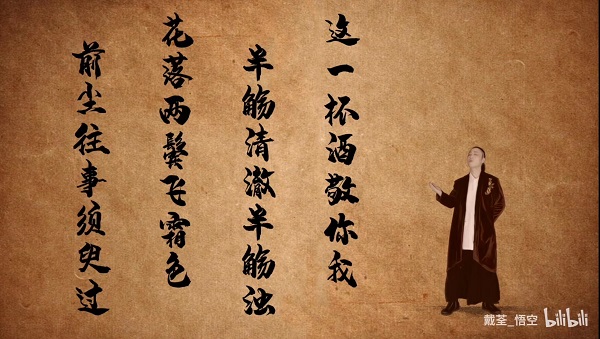 这一杯酒敬你我
半觞清澈半觞浊
花落两鬓飞霜色
前尘往事须臾过
戴荃_悟空 bilibili